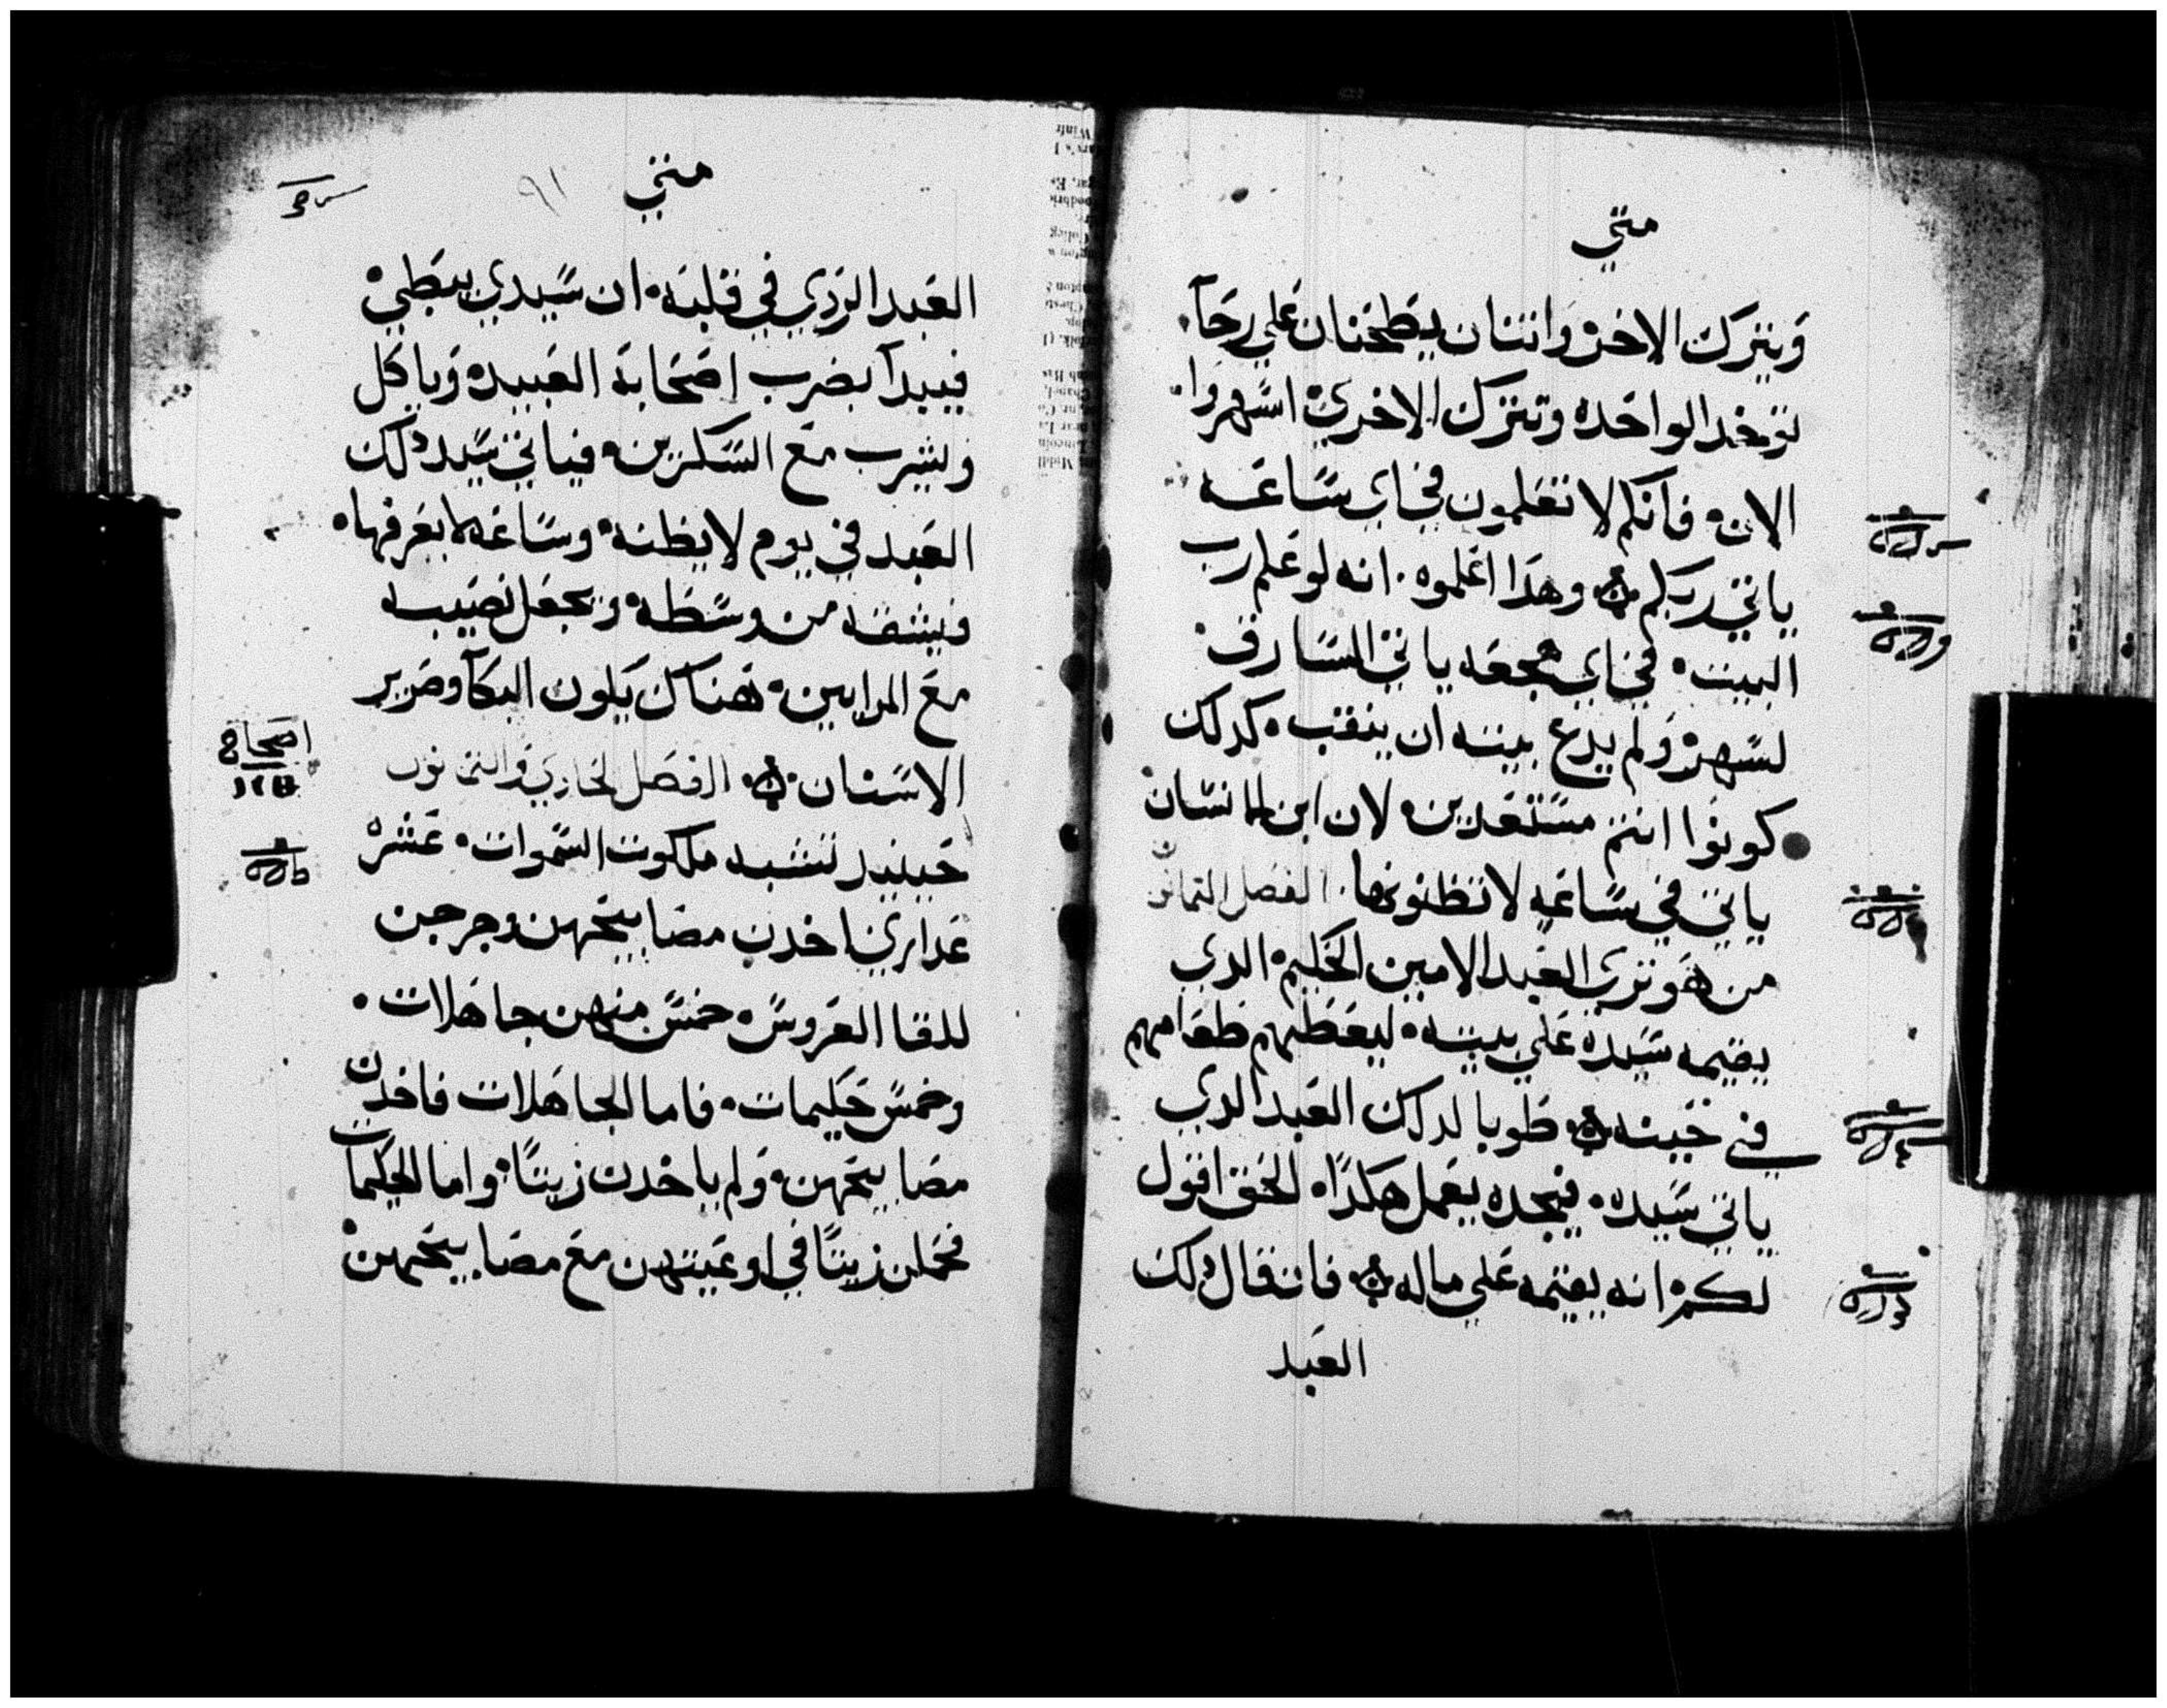 متي
ويترك الاخر واثنتان يطحنان علي رحا
توخد الواحده وتترك الاخري اسهروا
الان فانكم لا تعلمون في اي ساعه
ياتي ربكم وهدا اعلموه انه لو علم رب
البيت في اي هجعه ياتي السارق
لسهر ولم يدع بيته ان ينقب كدلك
كونوا انتم مستعدين لان ابن الانسان
ياتي في ساعه لا تظنونها الفصل التمانون
من هو تري العبد الامين الحكيم الدي
يقيمه سيده علي بيته ليعطيهم طعامهم
في حينه طوبا لدلك العبد الدي
ياتي سيده فيجده يعمل هكدا الحق اقول
لكم انه يقيمه علي ماله فان قال دلك
العبد
متي
٩١
العبد الردي في قلبه ان سيدي يبطي
فيبدا يضرب اصحابه العبيد وياكل
ويشرب مع السكرين فياتي سيد دلك
العبد في يوم لا يظنه وساعه لا يعرفها
فيشقه من وسطه ويجعل نصيبه
مع المرايين هناك يكون البكا وصرير
الاسنان الفصل الحادي والتمانون
حينيد تشبه ملكوت السموات عشر
عداري اخدن مصابيحهن وخرجن
للقا العروس خمس منهن جاهلات
وخمس حكيمات فاما الجاهلات فاخدن
مصابيحهن ولم ياخدن زيتا واما الحكيمات
فحملن زيتا في اوعيتهن مع مصابيحهن
اصحاح